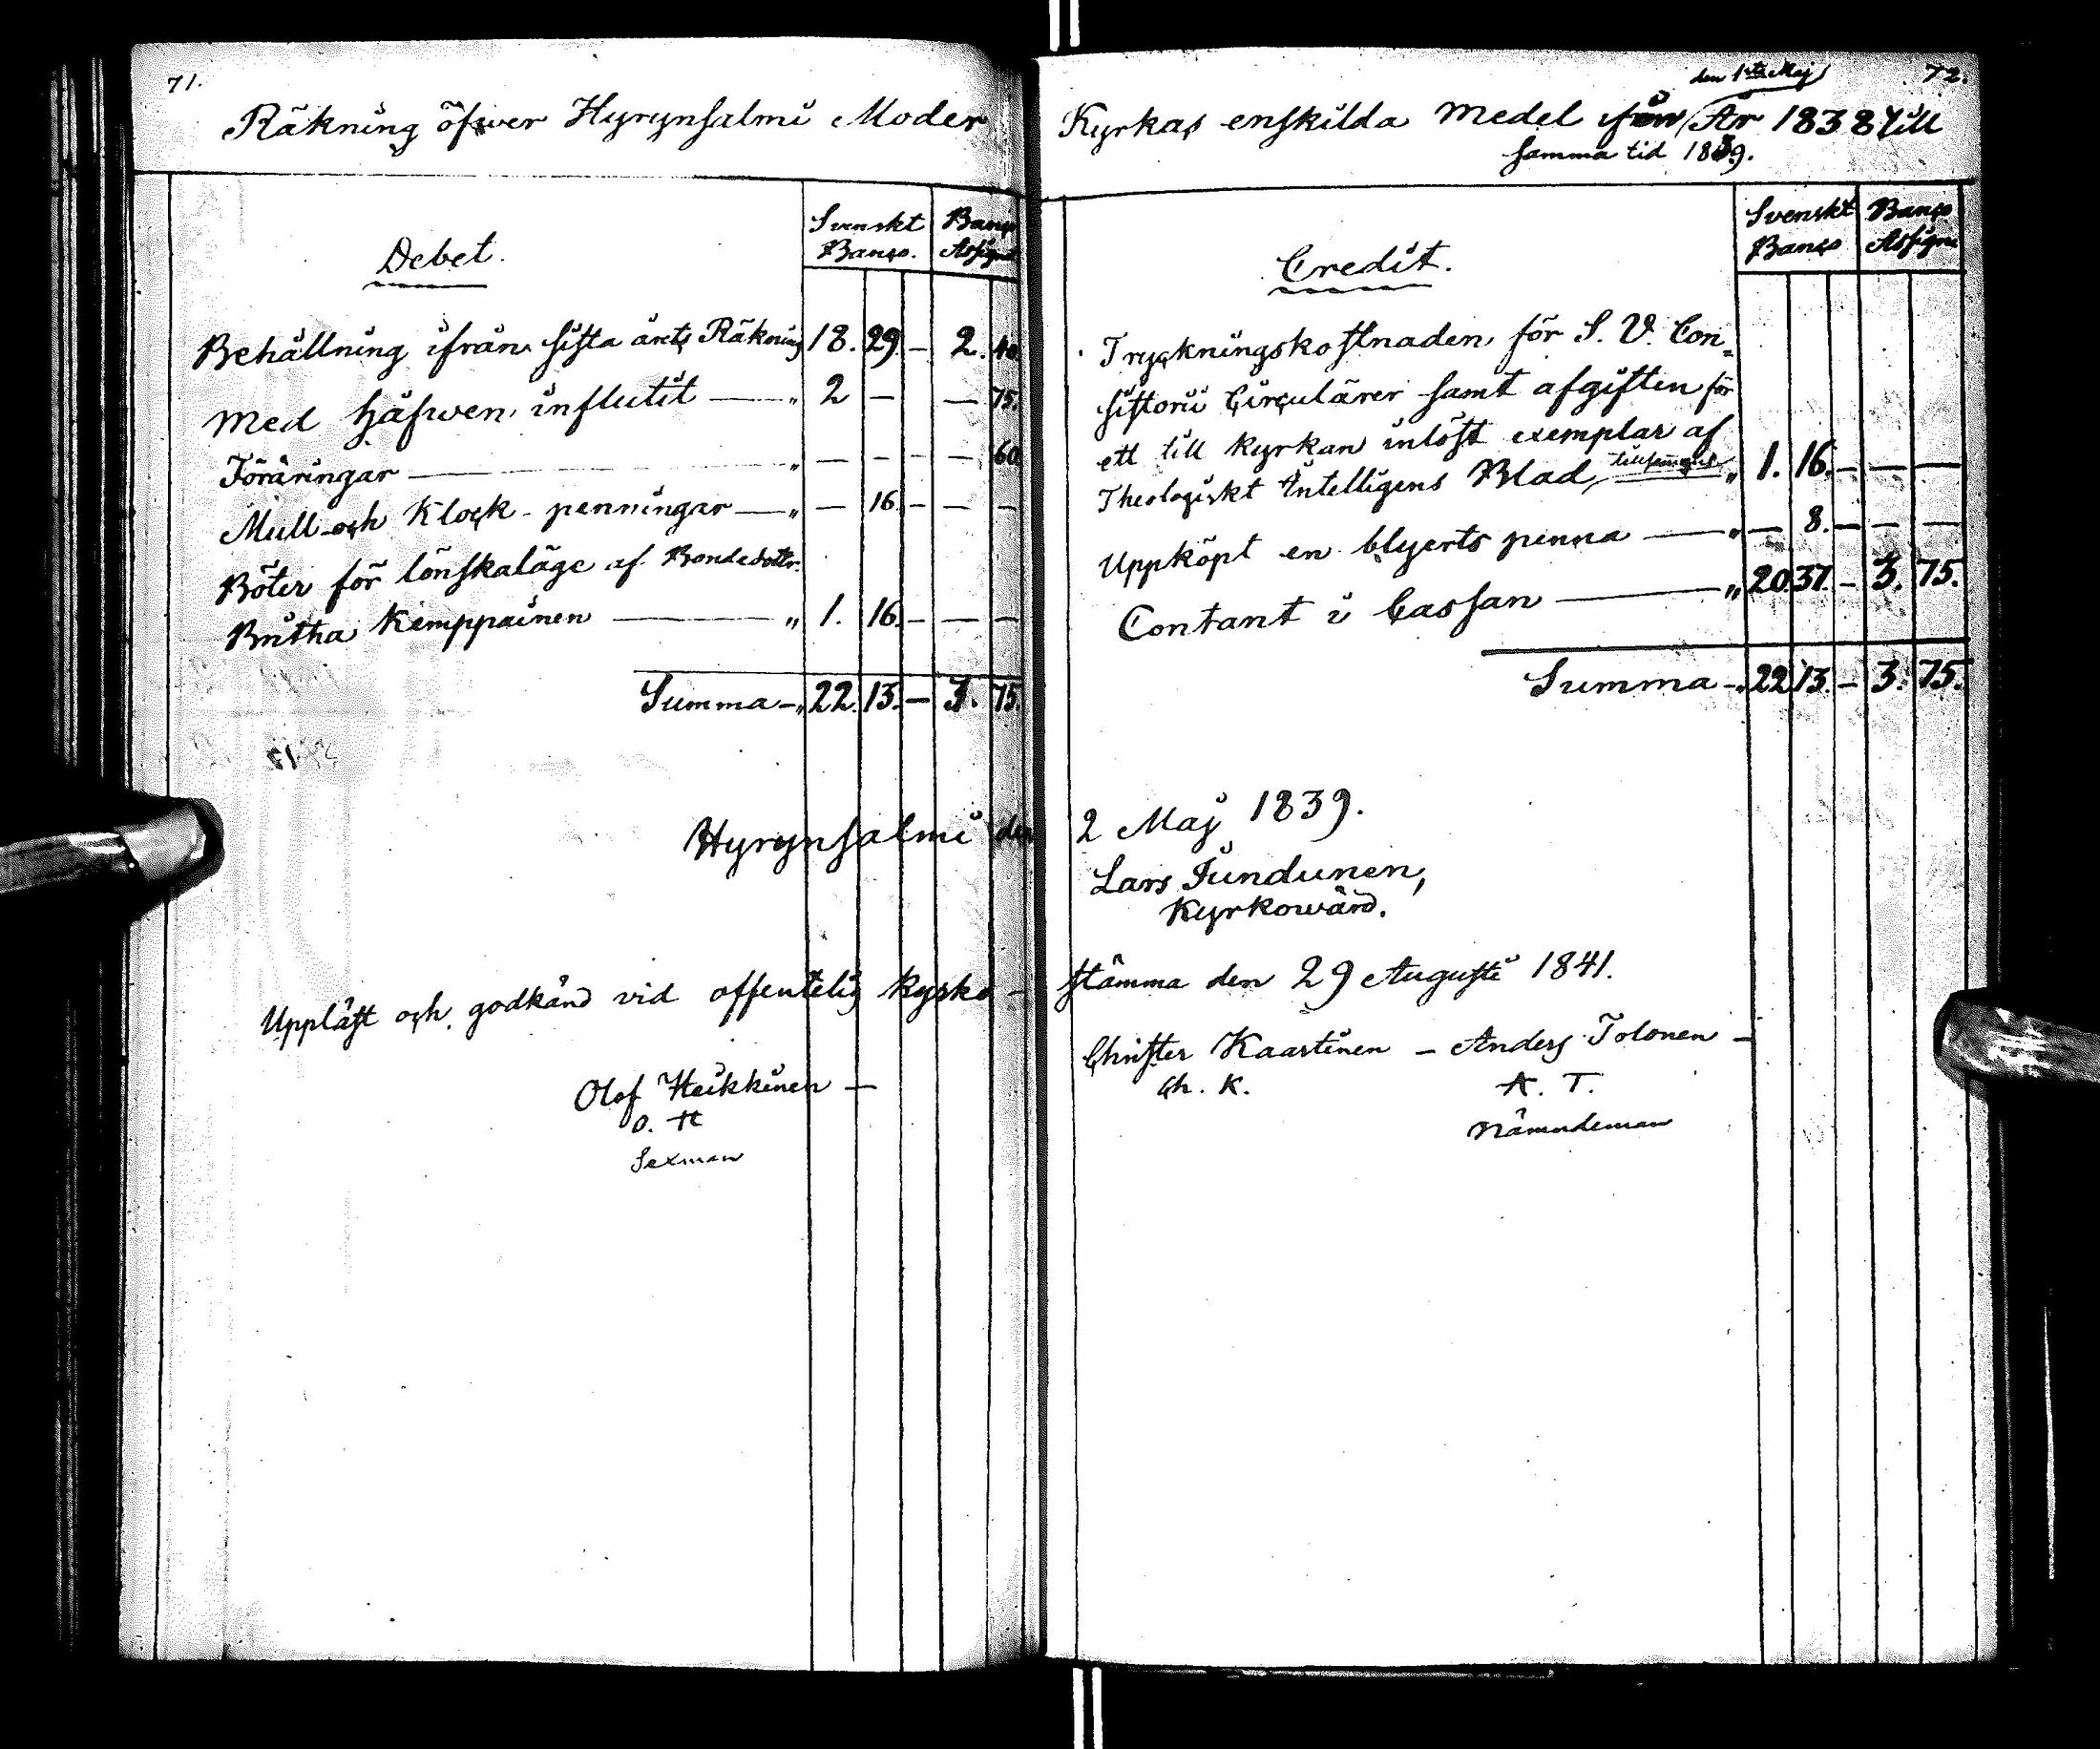 71.
Räkning öfwer Hyrynsalmi Moder
Debet.
Svenskt Banco. Banco Assign.
Behållning ifrån sista årets Räkning 18. 29. – 2. 40.
Med håfwen influtit — „ 2 – – 75.
Föräringar — „ – – – – 60.
Mull- och Klock-penningar — „ – 16. – – –
Böter för lönskaläge af Bondedottr.
Britha Kemppainen — „ 1. 16. – – –
Summa – „ 22. 13. – 3. 75.
Hyrynsalmi den
Uppläst och godkänd vid offentelig Kyrko-
Olof Heikkinen –
O. H
Sexman
72.
den 1sta Maj
Kyrkas enskilda Medel ifrån År 1838 till
samma tid 1839.
Credit.
Svenskt Banco Banco Assign.
Tryckningskostnaden för S. V. Con-
sistorii Circulärer samt afgiften för
ett till kyrkan inlöst exemplar af
Theologiskt Intelligens Blad, „ 1. 16. – – –
Uppköpt en blyerts penna — „ – 8. – – –
Contant i Cassan — „ 20. 37. – 3. 75.
Summa – „ 22. 13. – 3. 75.
2 Maj 1839.
Lars Jundunen,
Kyrkowärd.
stämma den 29 Augusti 1841.
Christer Kaartinen – Anders Tolonen –
Ch. K. A. T.
Nämndeman